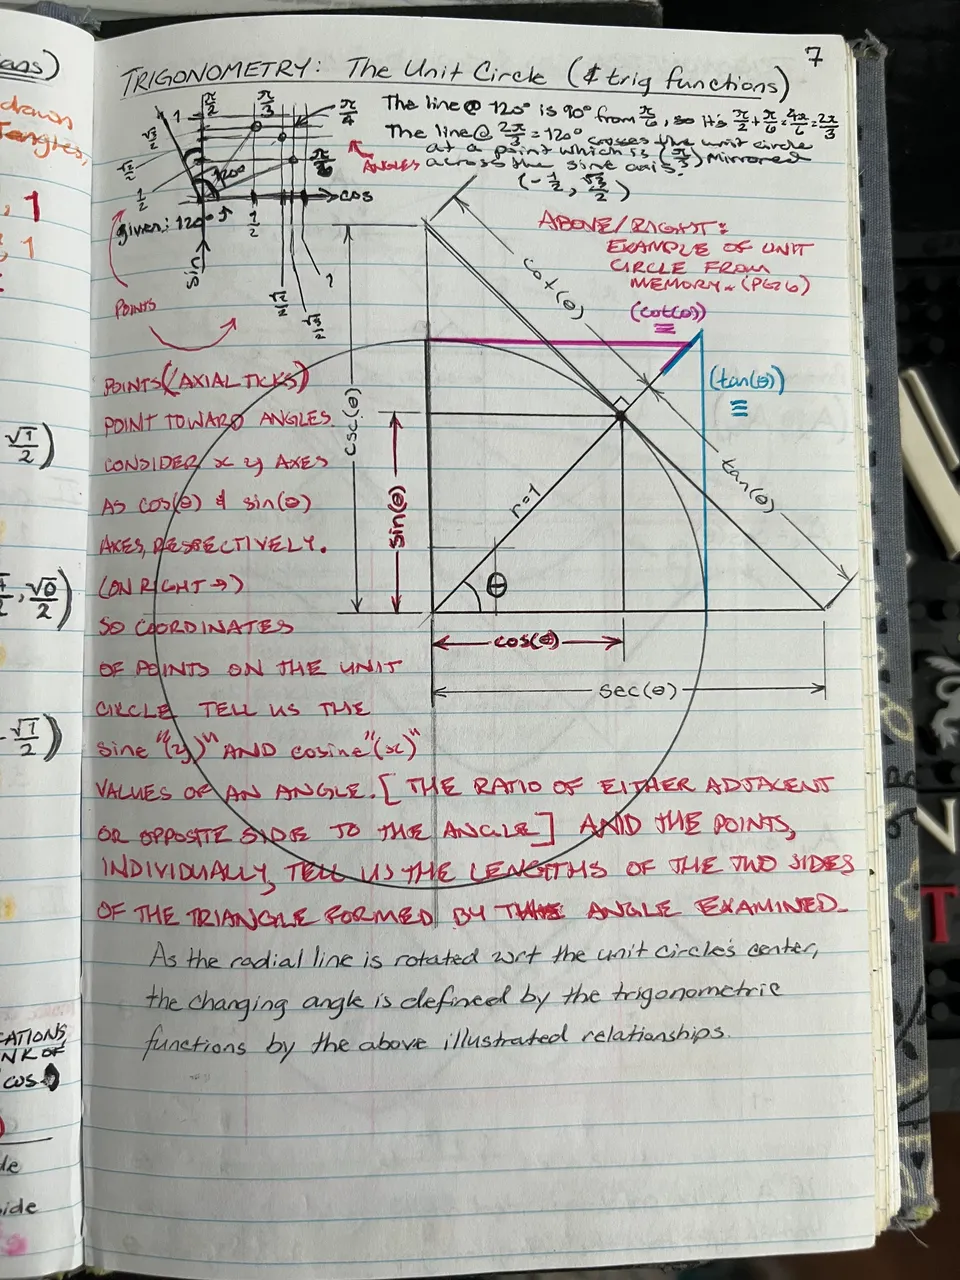 7
TRIGONOMETRY: The Unit Circle (& trig functions)
The line @ 120° is 90° from π/6, so it's π/2 + π/6 = 4π/6 = 2π/3
The line @ 2π/3 = 120° crosses the unit circle
at a point which is (π/3) mirrored
across the sine axis.
(-1/2, √3/2)
π/2
π/3
π/4
π/6
ANGLES
1
√3/2
√2/2
1/2
120°
given: 120°
cos
sin
1/2
√2/2
√3/2
1
POINTS
ABOVE/RIGHT:
EXAMPLE OF UNIT
CIRCLE FROM
MEMORY (PG 6)
cot(θ)
(cot(θ))
(tan(θ))
tan(θ)
csc(θ)
sin(θ)
r=1
θ
cos(θ)
sec(θ)
POINTS (AXIAL TICKS)
POINT TOWARD ANGLES.
CONSIDER x y AXES
AS cos(θ) & sin(θ)
AXES, RESPECTIVELY.
(ON RIGHT →)
SO COORDINATES
OF POINTS ON THE UNIT
CIRCLE TELL US THE
sine "(y)" AND cosine "(x)"
VALUES OF AN ANGLE. [THE RATIO OF EITHER ADJACENT
OR OPPOSITE SIDE TO THE ANGLE] AND THE POINTS,
INDIVIDUALLY, TELL US THE LENGTHS OF THE TWO SIDES
OF THE TRIANGLE FORMED BY ANGLE EXAMINED.
As the radial line is rotated wrt the unit circle's center,
the changing angle is defined by the trigonometric
functions by the above illustrated relationships.
ans)
drawn
, 1
, 1
√1/2)
, √0/2)
-√1/2)
CATIONS,
NK OF
cos
de
side